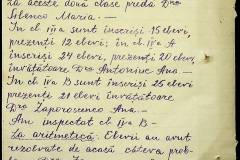 La aceste două clase predă Dra
Sibenco Maria. —
În cl. IVa sunt înscriși 15 elevi,
prezenți 12 elevi; în cl. IVa A
înscriși 24 elevi, prezenți 20 elevi
învățătoare Dra Antoniuc Ana —
În cl. IVa B sunt înscriși 25 elevi
prezenți 21 elevi învățătoare
Dra Zaporosenco Ana. —
Am inspectat cl. IVa B —
La aritmetică. Elevii au avut
rezolvate de acasă câteva prob-